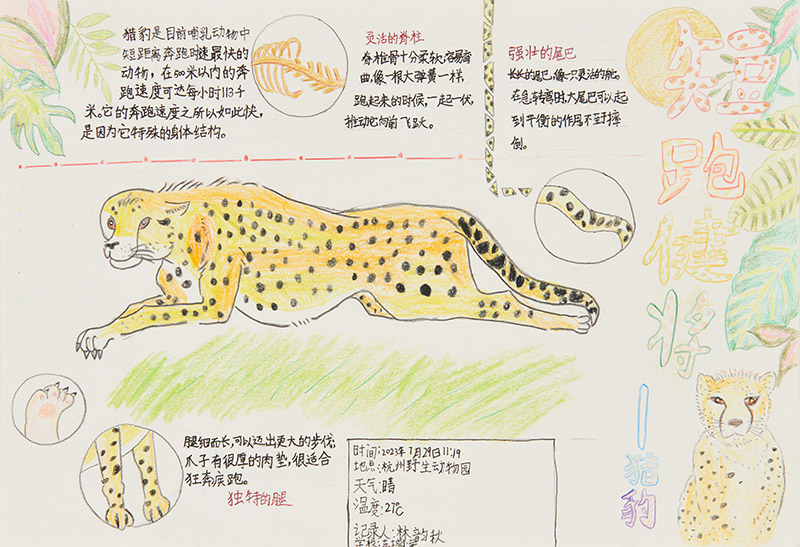 猎豹是目前哺乳动物中
短距离奔跑时速最快的
动物，在500米以内的奔
跑速度可达每小时113千
米。它的奔跑速度之所以如此快，
是因为它特殊的身体结构。
灵活的脊柱
脊椎骨十分柔软，容易弯
曲，像一根大弹簧一样，
跑起来的时候，一起一伏，
推动它向前飞跃。
强壮的尾巴
长长的尾巴，像一只灵活的舵。
在急转弯时，大尾巴可以起
到平衡的作用不至于摔
倒。
短
跑
健
将
—猎豹
腿细而长，可以迈出更大的步伐，
爪子有很厚的肉垫，很适合
狂奔疾跑。
独特的腿
时间：2023年7月29日11:19
地点：杭州野生动物园
天气：晴
温度：27℃
记录人：林韵秋